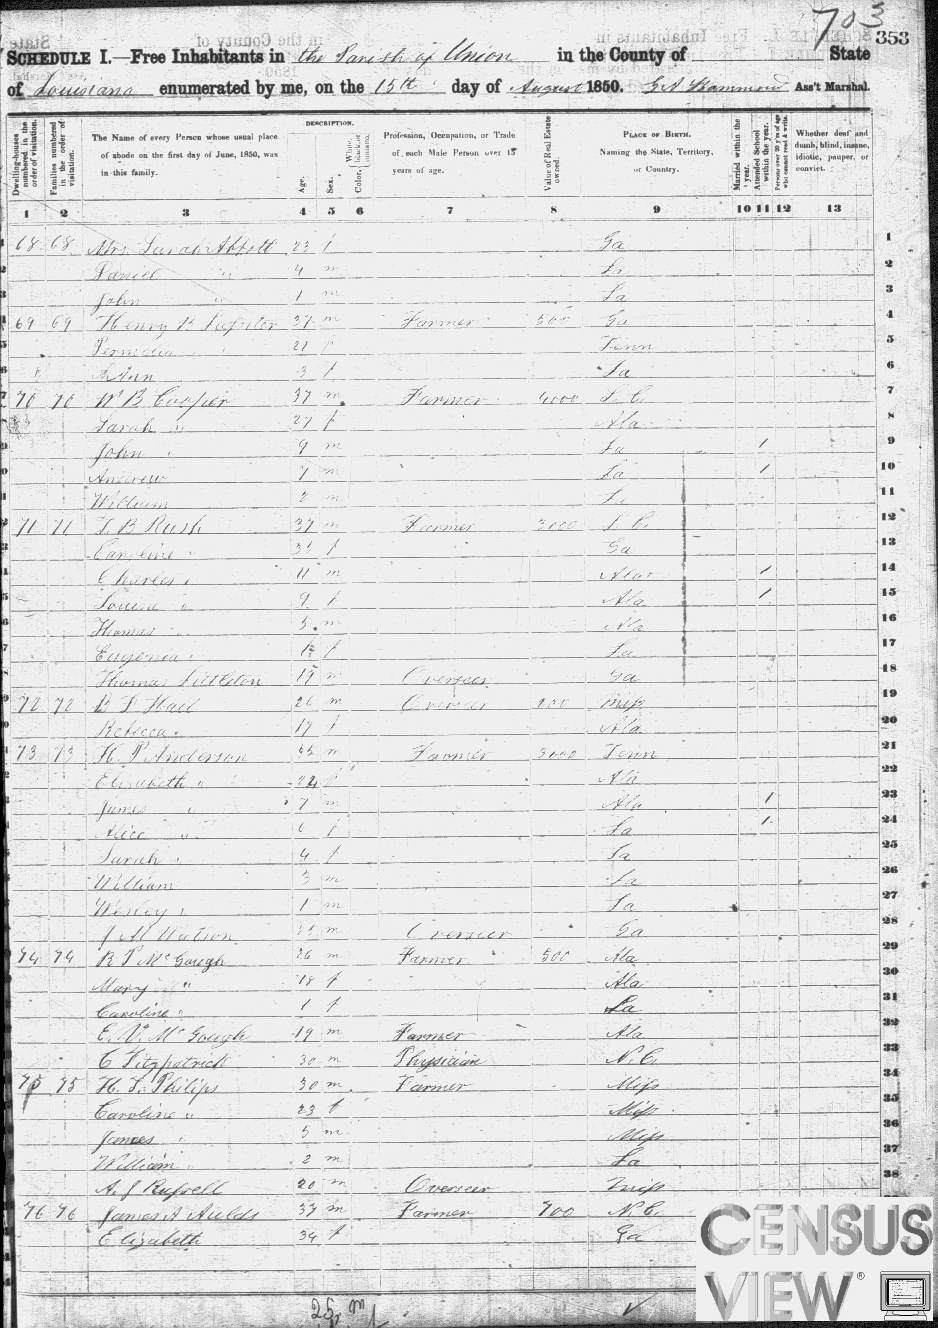 703
353
SCHEDULE I.—Free Inhabitants in the Parish of Union in the County of State
of Louisiana enumerated by me, on the 15th day of August 1850. Ass't Marshal.
Dwelling-houses numbered in the order of visitation.
Families numbered in the order of visitation.
The Name of every Person whose usual place of abode on the first day of June, 1850, was in this family.
DESCRIPTION.
Age.
Sex.
Color, White, black, or mulatto.
Profession, Occupation, or Trade of each Male Person over 15 years of age.
Value of Real Estate owned.
PLACE OF BIRTH.
Naming the State, Territory, or Country.
Married within the year.
Attended School within the year.
Persons over 20 y'rs of age who cannot read & write.
Whether deaf and dumb, blind, insane, idiotic, pauper, or convict.
1 2 3 4 5 6 7 8 9 10 11 12 13
68 68 Mrs. Sarah Abbott 23 f Ga 1
Daniel " 4 m La 2
John " 1 m La 3
69 69 Henry B 37 m Farmer 500 Ga 4
21 f Tenn 5
Ann 3 f La 6
70 70 W B Cooper 37 m Farmer 4000 S. C. 7
Sarah " 27 f Ala 8
John " 9 m La / 9
Andrew 7 m La / 10
William 2 m La 11
71 71 B Rush 37 m Farmer 3000 S. C. 12
Caroline " f Ga 13
Charles " 11 m Ala / 14
Louisa " 9 f Ala / 15
Thomas " 5 m Ala 16
Eugenia " f La 17
Thomas Littleton 19 m Overseer Ga 18
72 72 B Hall 26 m Overseer 200 Miss 19
Rebecca " 17 f Ala 20
73 73 H. P. Anderson m Farmer 3000 Tenn 21
Elizabeth " 24 f Ala 22
James " 7 m Ala / 23
Alice " 6 f La / 24
Sarah " 4 f La 25
William 3 m La 26
Wesley " 1 m La 27
J M Watson 25 m Overseer Ga 28
74 74 R P McGough 26 m Farmer 500 Ala 29
Mary " 18 f Ala 30
Caroline " 1 f La 31
E. V. McGough 19 m Farmer Ala 32
C Fitzpatrick 30 m Physician N. C. 33
75 75 H. L. Philips 30 m Farmer Miss 34
Caroline " 23 f Miss 35
James " 5 m Miss 36
William " 2 m La 37
A. J Russell 20 m Overseer Miss 38
76 76 James A Aulds 37 m Farmer 700 N. C.
Elizabeth 34 f Ga
25 m
CENSUS
VIEW®